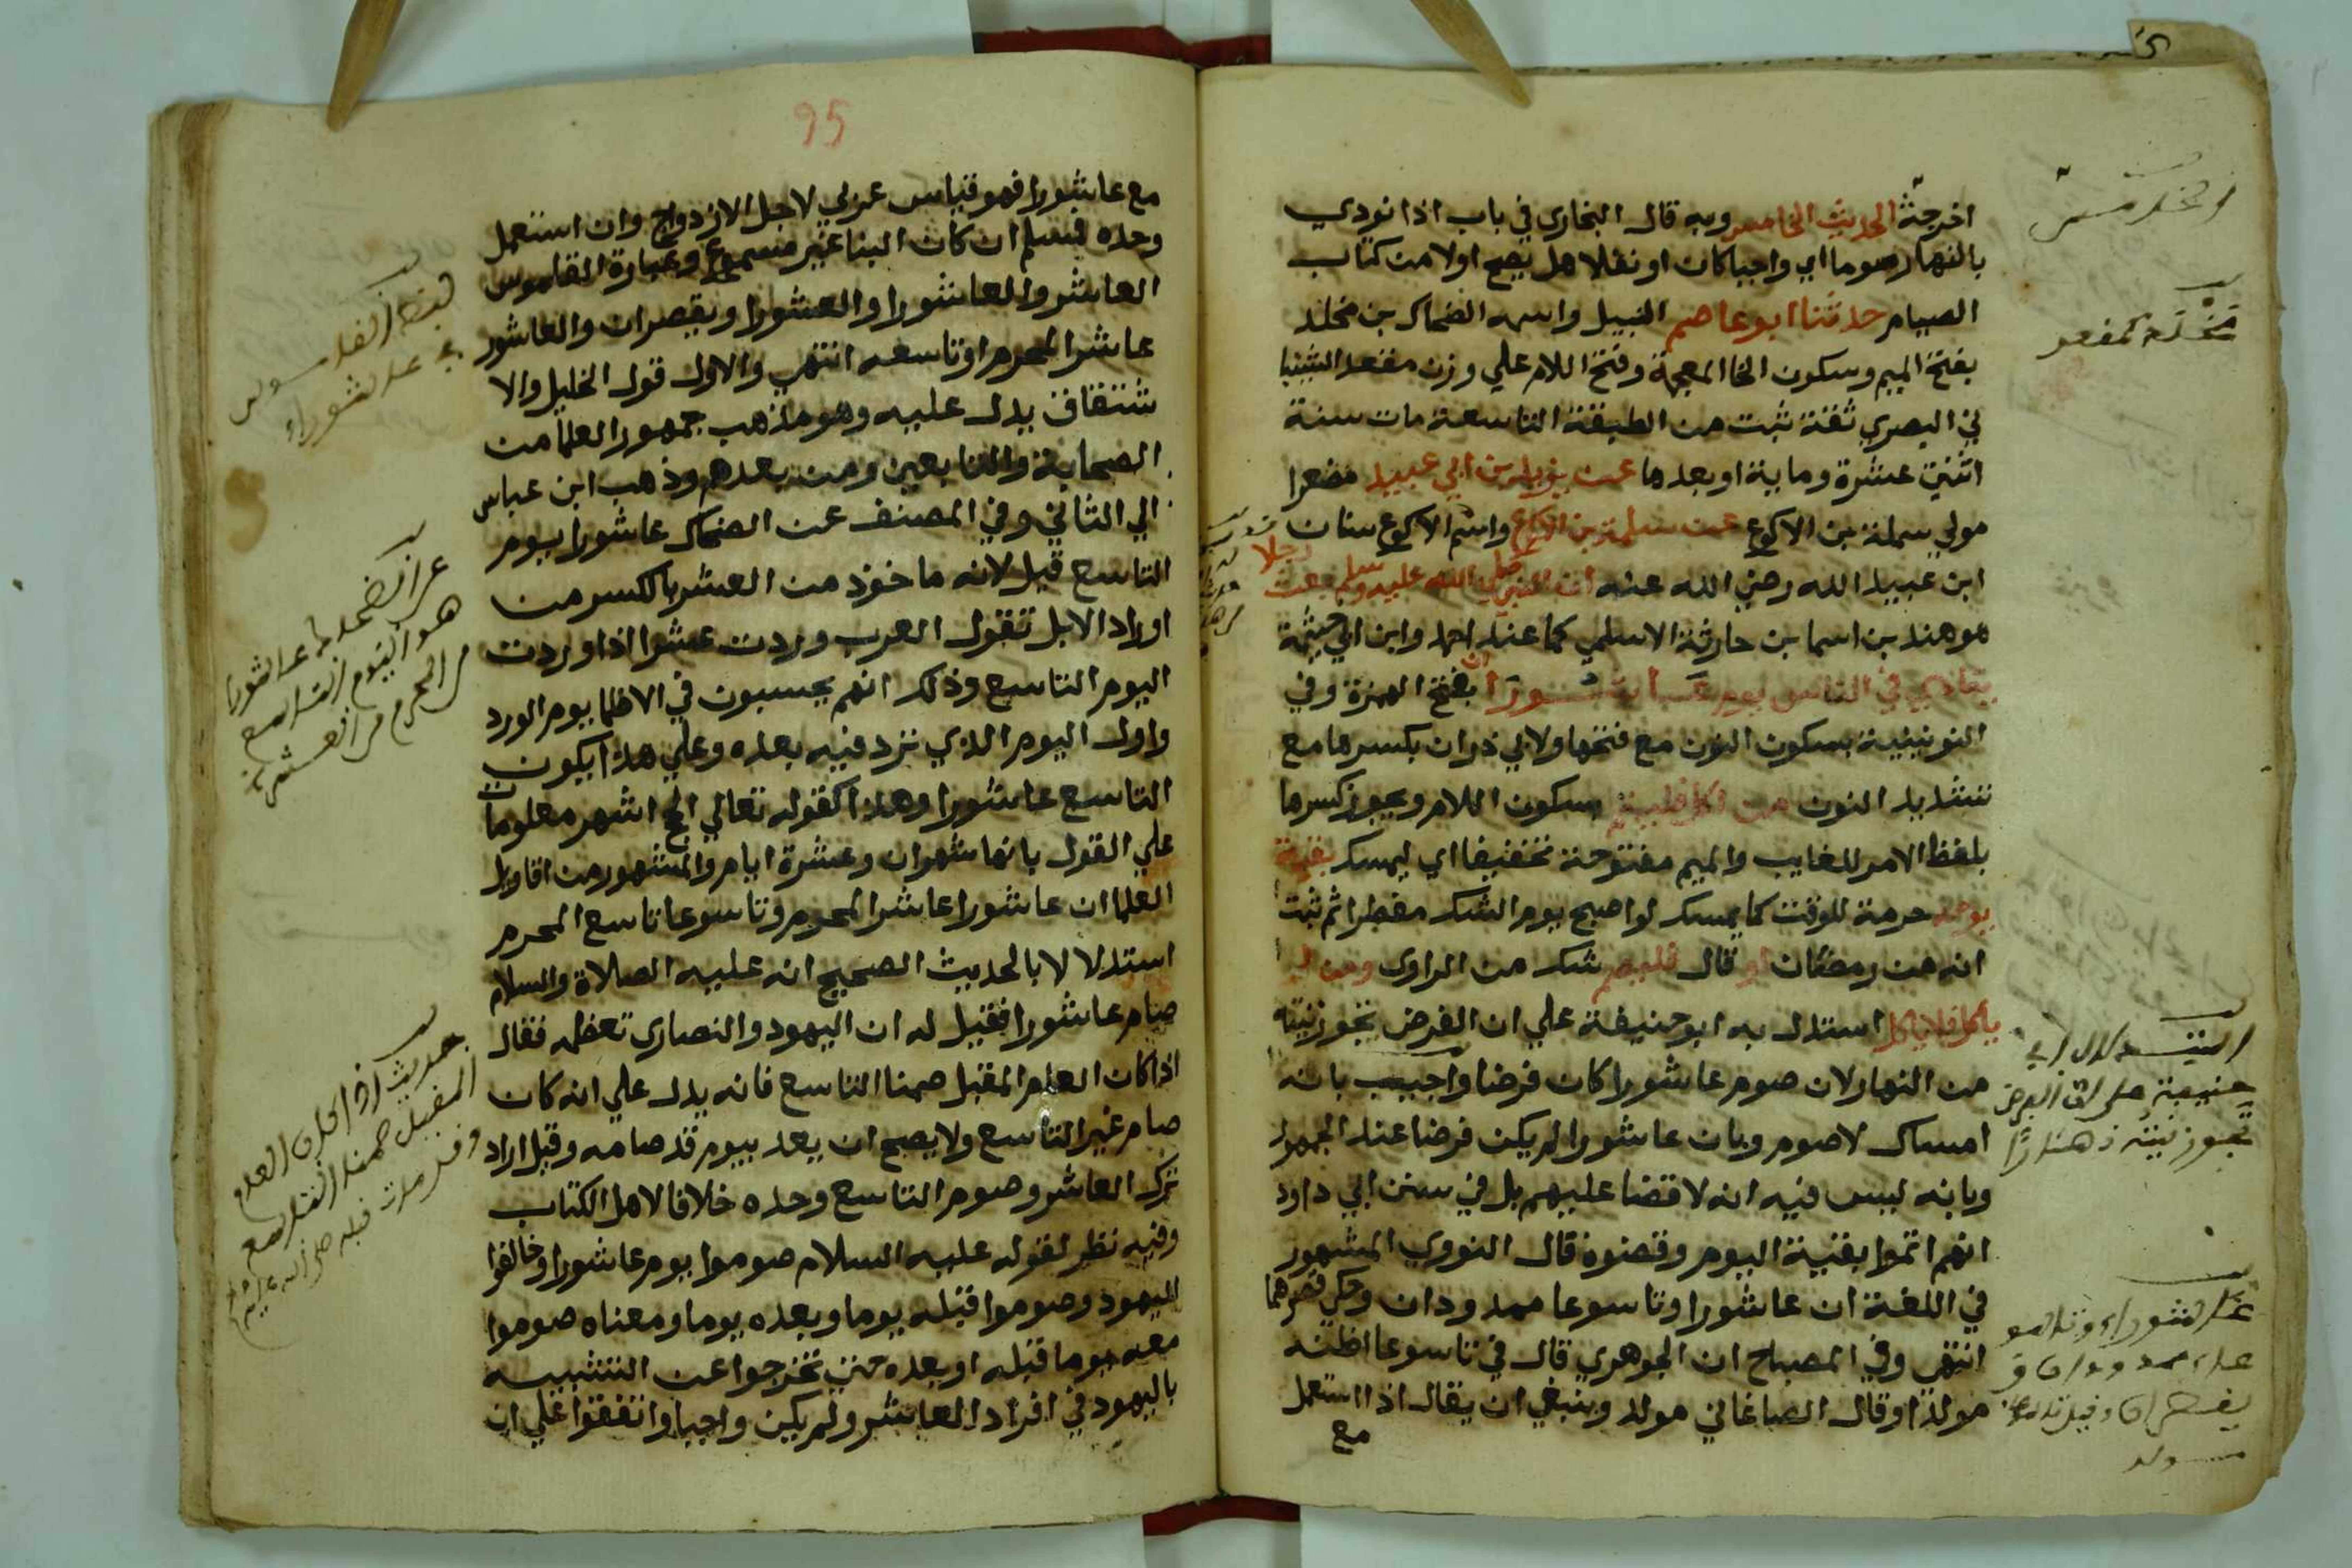 اخرجته الحديث الخامس وبه قال البخاري في باب اذا نودي
بالنهار صوما اي واجبا كان او نفلا هل يصح اولا من كتاب
الصيام حدثنا ابو عاصم النبيل واسمه الضحاك بن مخلد
بفتح الميم وسكون الخا المعجمة وفتح اللام علي وزن مقعد الشيبا
ني البصري ثقة ثبت من الطبقة التاسعة مات سنة
اثنتي عشرة وماية او بعدها عن يزيد بن ابي عبيد مصغرا
مولي سلمة بن الاكوع عن سلمة بن الاكوع واسم الاكوع سنان
ابن عبيد الله رضي الله عنه ان النبي صلي الله عليه وسلم بعث رجلا
هو هند بن اسما بن حارثة الاسلمي كما عند احمد وابن ابي خيثمة
ينادي في الناس يوم عاشورا ان بفتح الهمزة وفي
اليونينية بسكون النون مع فتحها ولابي ذر ان بكسرها مع
تشديد النون من اكل فليتم بسكون اللام ويجوز كسرها
بلفظ الامر للغايب والميم مفتوحة تخفيفا اي ليمسك بقية
يومه حرمة للوقت كما يمسك لو اصبح يوم الشك مفطرا ثم ثبت
انه من رمضان او قال فليصم شك من الراوي ومن لم
ياكل فلا ياكل استدل به ابو حنيفة علي ان الفرض تجوز نيته
من النهار لان صوم عاشورا كان فرضا واجيب بانه
امساك لا صوم وبان عاشورا لم يكن فرضا عند الجمهور
وبانه ليس فيه انه لا قضا عليهم بل في سنن ابي داود
انهم اتموا بقية اليوم وقضوه قال النووي المشهور
في اللغة ان عاشورا وتاسوعا ممدودان وحكي قصرهما
انتهي وفي المصباح ان الجوهري قال في تاسوعا اظنه
مولدا وقال الصاغاني مولد وينبغي ان يقال اذا استعمل
مع
مخلد كمقعد
استدلال ابي
حنيفة على ان الفرض
تجوز نيته نهارًا
عاشوراء وتاسو
عاء ممدودان و
يقصران وقيل تاسوعا
مولد
95
مع عاشورا فهو قياس عربي لاجل الازدواج وان استعمل
وحده فمسلم ان كان البنا غير مسموع وعبارة القاموس
العاشر والعاشورا والعشورا ويقصران والعاشور
عاشر المحرم او تاسعه انتهي والاول قول الخليل والا
شتقاق يدل عليه وهو مذهب جمهور العلما من
الصحابة والتابعين ومن بعدهم وذهب ابن عباس
الي الثاني وفي المصنف عن الضحاك عاشورا يوم
التاسع قيل لانه ماخوذ من العشر بالكسر من
اوراد الابل تقول العرب وردت عشرا اذا وردت
اليوم التاسع وذلك انهم يحسبون في الاظما يوم الورد
واول اليوم الذي ترد فيه بعده وعلي هذا يكون
التاسع عاشورا وهذا كقوله تعالي الحج اشهر معلومات
علي القول بانها شهران وعشرة ايام والمشهور من اقاويل
العلما ان عاشورا عاشر المحرم وتاسوعا تاسع المحرم
استدلالا بالحديث الصحيح انه عليه الصلاة والسلام
صام عاشورا فقيل له ان اليهود والنصاري تعظمه فقال
اذا كان العام المقبل صمنا التاسع فانه يدل علي انه كان
صام غير التاسع ولا يصح ان يعد بيوم قد صامه وقيل اراد
ترك العاشر وصوم التاسع وحده خلافا لاهل الكتاب
وفيه نظر لقوله عليه السلام صوموا يوم عاشورا وخالفوا
اليهود وصوموا قبله يوما وبعده يوما ومعناه صوموا
معه يوما قبله او بعده حتي تخرجوا عن التشبيه
باليهود في افراد العاشر ولم يكن واجبا واتفقوا علي ان
عاشوراء
عن الضحاك عاشورا
هو اليوم التاسع
من المحرم من العشر
حديث اذا كان العام
المقبل صمنا التاسع